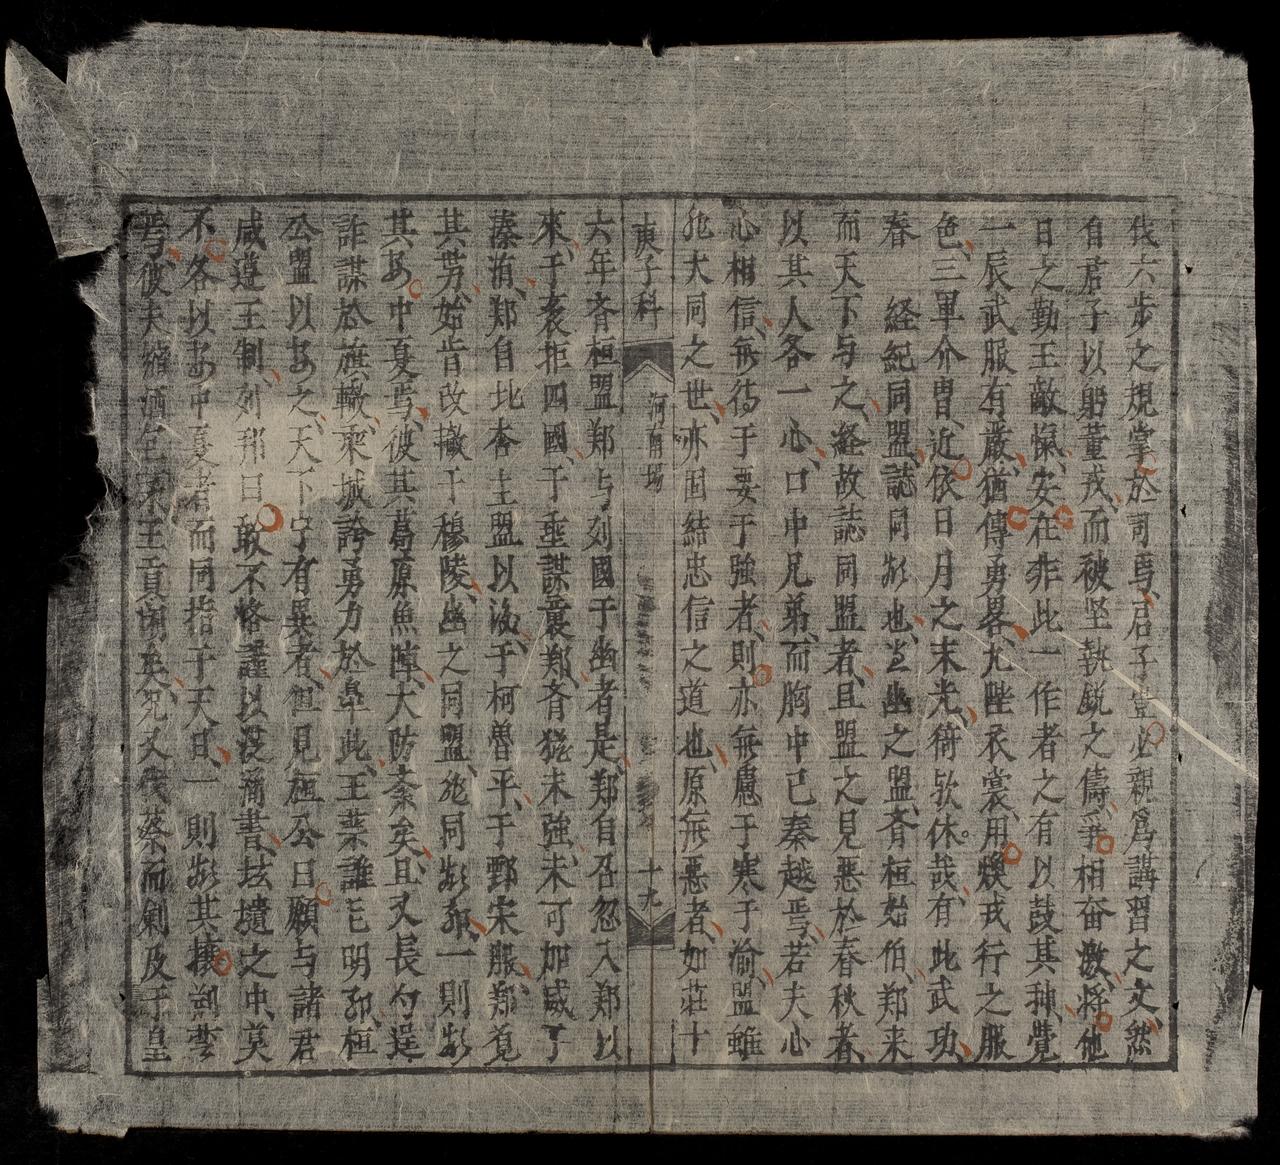 伐六步之規掌於司馬君子豈必親爲講習之文然
自君子以躬董戎而被坚執銳之儔爭相奋激将他
日之勤王敵愾安在非此一作者之有以鼓其神覺
一辰武服有嚴猶傳勇畧尤陛衣裳用煥戎行之服
色三軍介冑近依日月之末光猗欤休哉有此武功
春　経紀同盟誌同也之盟斉桓始伯郑来
而天下与之経故誌同盟者且盟之見悪於春秋者
以其人各一心口中兄弟而胸中已秦越焉若夫心
心相信無待于要于強者則亦無慮于寒于渝盟雖
大同之世亦固結忠信之道也原無悪者如莊十
庚子科　河南場　十九
六年斉桓盟郑与列國于幽者是郑自召忽入郑以
來于袤拒四國于亜謀襄郑斉犹未強未可加威于
溱洧郑自此杏主盟以後于柯魯平于鄄宋服郑覓
其势始肯改轍于穆陵幽之同盟同一則
其中夏焉彼其葛原魚陣大防紊矣且又長勺逞
詐謀於旗轍乘城誇勇力於阜此王葉誰明桓
公盟以之天下字有異者但見桓公曰願与諸君
咸遵王制列邦曰敢不恪謹以後簡書坛壝之中莫
不各以中夏者而同指于天日一則其
焉彼夫王貢矣况又伐蔡而剣及于皇